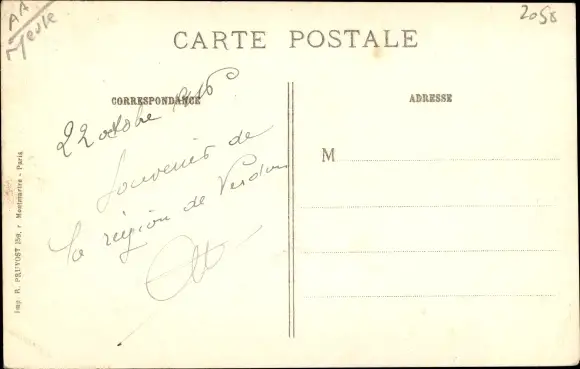 AA
Meuse
2058
CARTE POSTALE
CORRESPONDANCE
ADRESSE
22 octobre 1916
Souvenir de
la région de Verdun
M
Imp. R. PRUVOST 159, r Montmartre - Paris